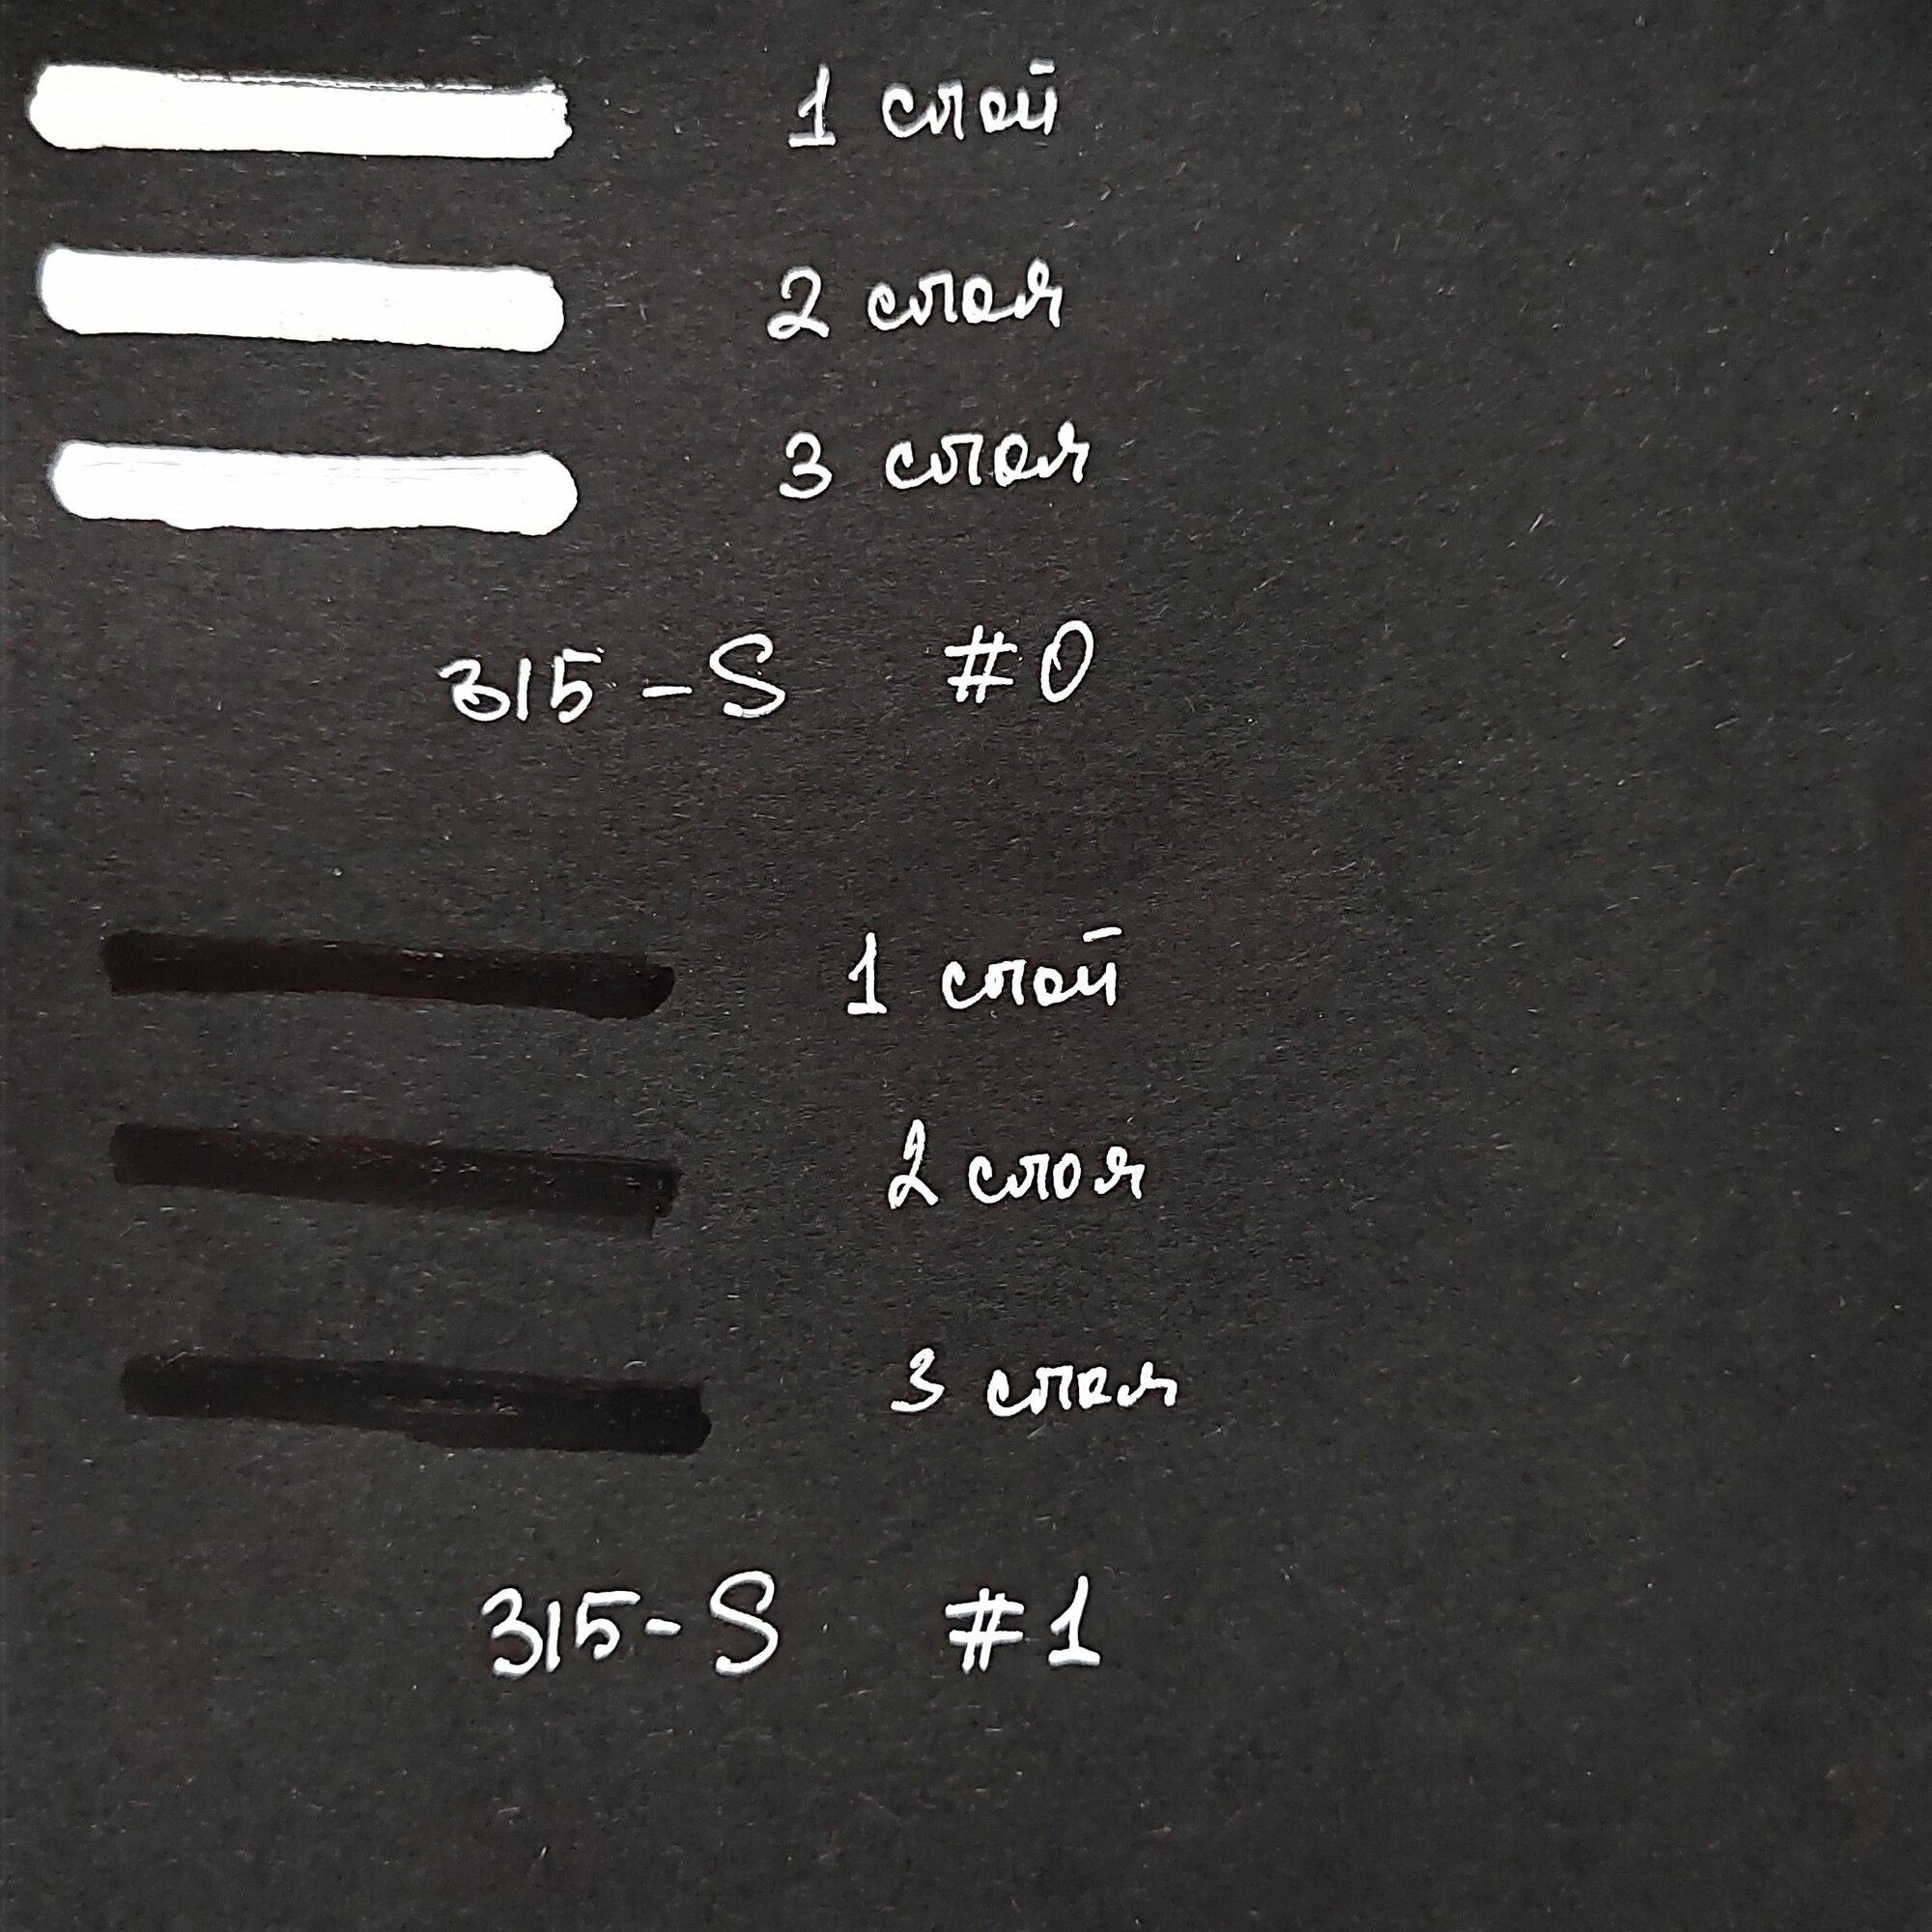 1 слой
2 слоя
3 слоя
315-S #0
1 слой
2 слоя
3 слоя
315-S #1